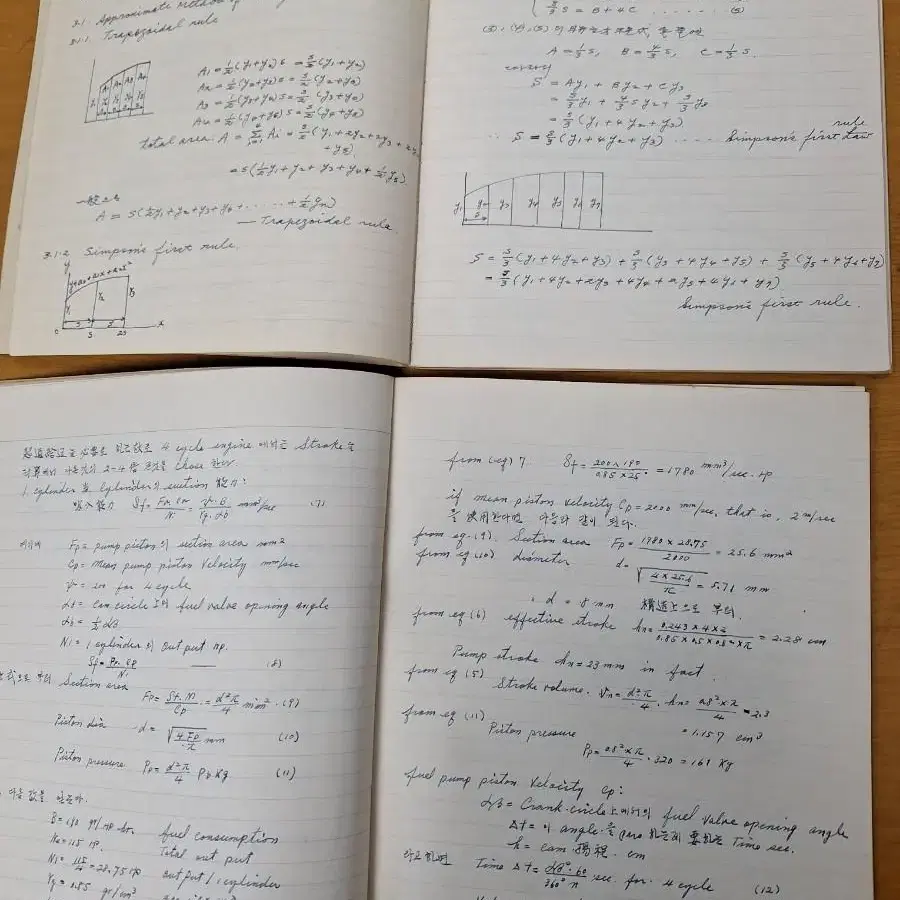 3.1. Approximate Method of
3.1.1. Trapezoidal rule
A₁ = ½(y₁+y₂)s = s/2(y₁+y₂)
A₂ = ½(y₂+y₃)s = s/2(y₂+y₃)
A₃ = ½(y₃+y₄)s = s/2(y₃+y₄)
A₄ = ½(y₄+y₅)s = s/2(y₄+y₅)
total area A = Σ Ai = s/2(y₁+2y₂+2y₃+
+y₅)
= s(½y₁+y₂+y₃+y₄+½y₅)
一般으로
A = s(½y₁+y₂+y₃+y₄+......+½yn)
— Trapezoidal rule.
3.1.2 Simpson's first rule.
y
y=a₀+a₁x+a₂x²
y₁ y₂ y₃
0 s 2s x
s = B+4C ........ (5)
A = ⅓s, B = 4/3 s, C = ⅓s.
S = Ay₁ + By₂ + Cy₃
= s/3 y₁ + 4/3 s y₂ + s/3 y₃
= s/3(y₁+4y₂+y₃)
rule
∴ S = s/3(y₁+4y₂+y₃) .... Simpson's first
y₁ y₂ y₃ y₄ y₅ y₆ y₇
s
S = s/3(y₁+4y₂+y₃) + s/3(y₃+4y₄+y₅) + s/3(y₅+4y₆+y₇)
= s/3(y₁+4y₂+2y₃+4y₄+2y₅+4y₆+y₇)
Simpson's first rule.
4 cycle engine 에서는 Stroke를
2~4 chose 한다.
1 cylinder 용 cylinder의 suction 能力:
吸入能力 Sf = = mm³/sec (7)
여기서 Fp = pump piston의 section area mm²
Cp = mean pump piston velocity mm/sec
for 4 cycle
= cam circle 上의 fuel valve opening angle
N₁ = 1 cylinder의 output HP.
(8)
Section area
Fp = Sf.N₁/Cp = d²π/4 mm² (9)
Piston dia d = √(4Fp/π) mm (10)
Piston pressure Pp = d²π/4 Kg (11)
다음 값을
B = 190 gr/HP-hr. fuel consumption
Ne = 115 HP. Total out put
N₁ = 115/4 = 28.75 HP output/1 cylinder
0.85 gr/cm³
from (eq) 7. Sf = 200×190/0.85×25 = 1780 mm³/sec.HP
if mean piston velocity Cp = 2000 mm/sec, that is, 2 m/sec
을 使用한다면 다음과 같이 된다.
from eq.(9). Section area Fp = 1780×28.75/2000 = 25.6 mm²
from eq (10) diameter d = √(4×25.6/π) = 5.71 mm
∴ d = 8 mm 構造上으로 부터.
from eq (6) effective stroke hn = = 2.28 cm
Pump stroke hn = 23 mm in fact.
from eq (5) Stroke volume. Vn = d²π/4 . hn = 0.8²×π/4 × 2.3
= 1.157 cm³
from eq (11) Piston pressure
Pp = 0.8²×π/4 . 320 = 161 Kg
fuel pump piston velocity Cp:
= Crank circle 上에서의 fuel valve opening angle
Δt = 이 angle을 要하는 Time sec.
h = cam 揚程. cm
라고 하면 Time Δt = sec. for 4 cycle (12)